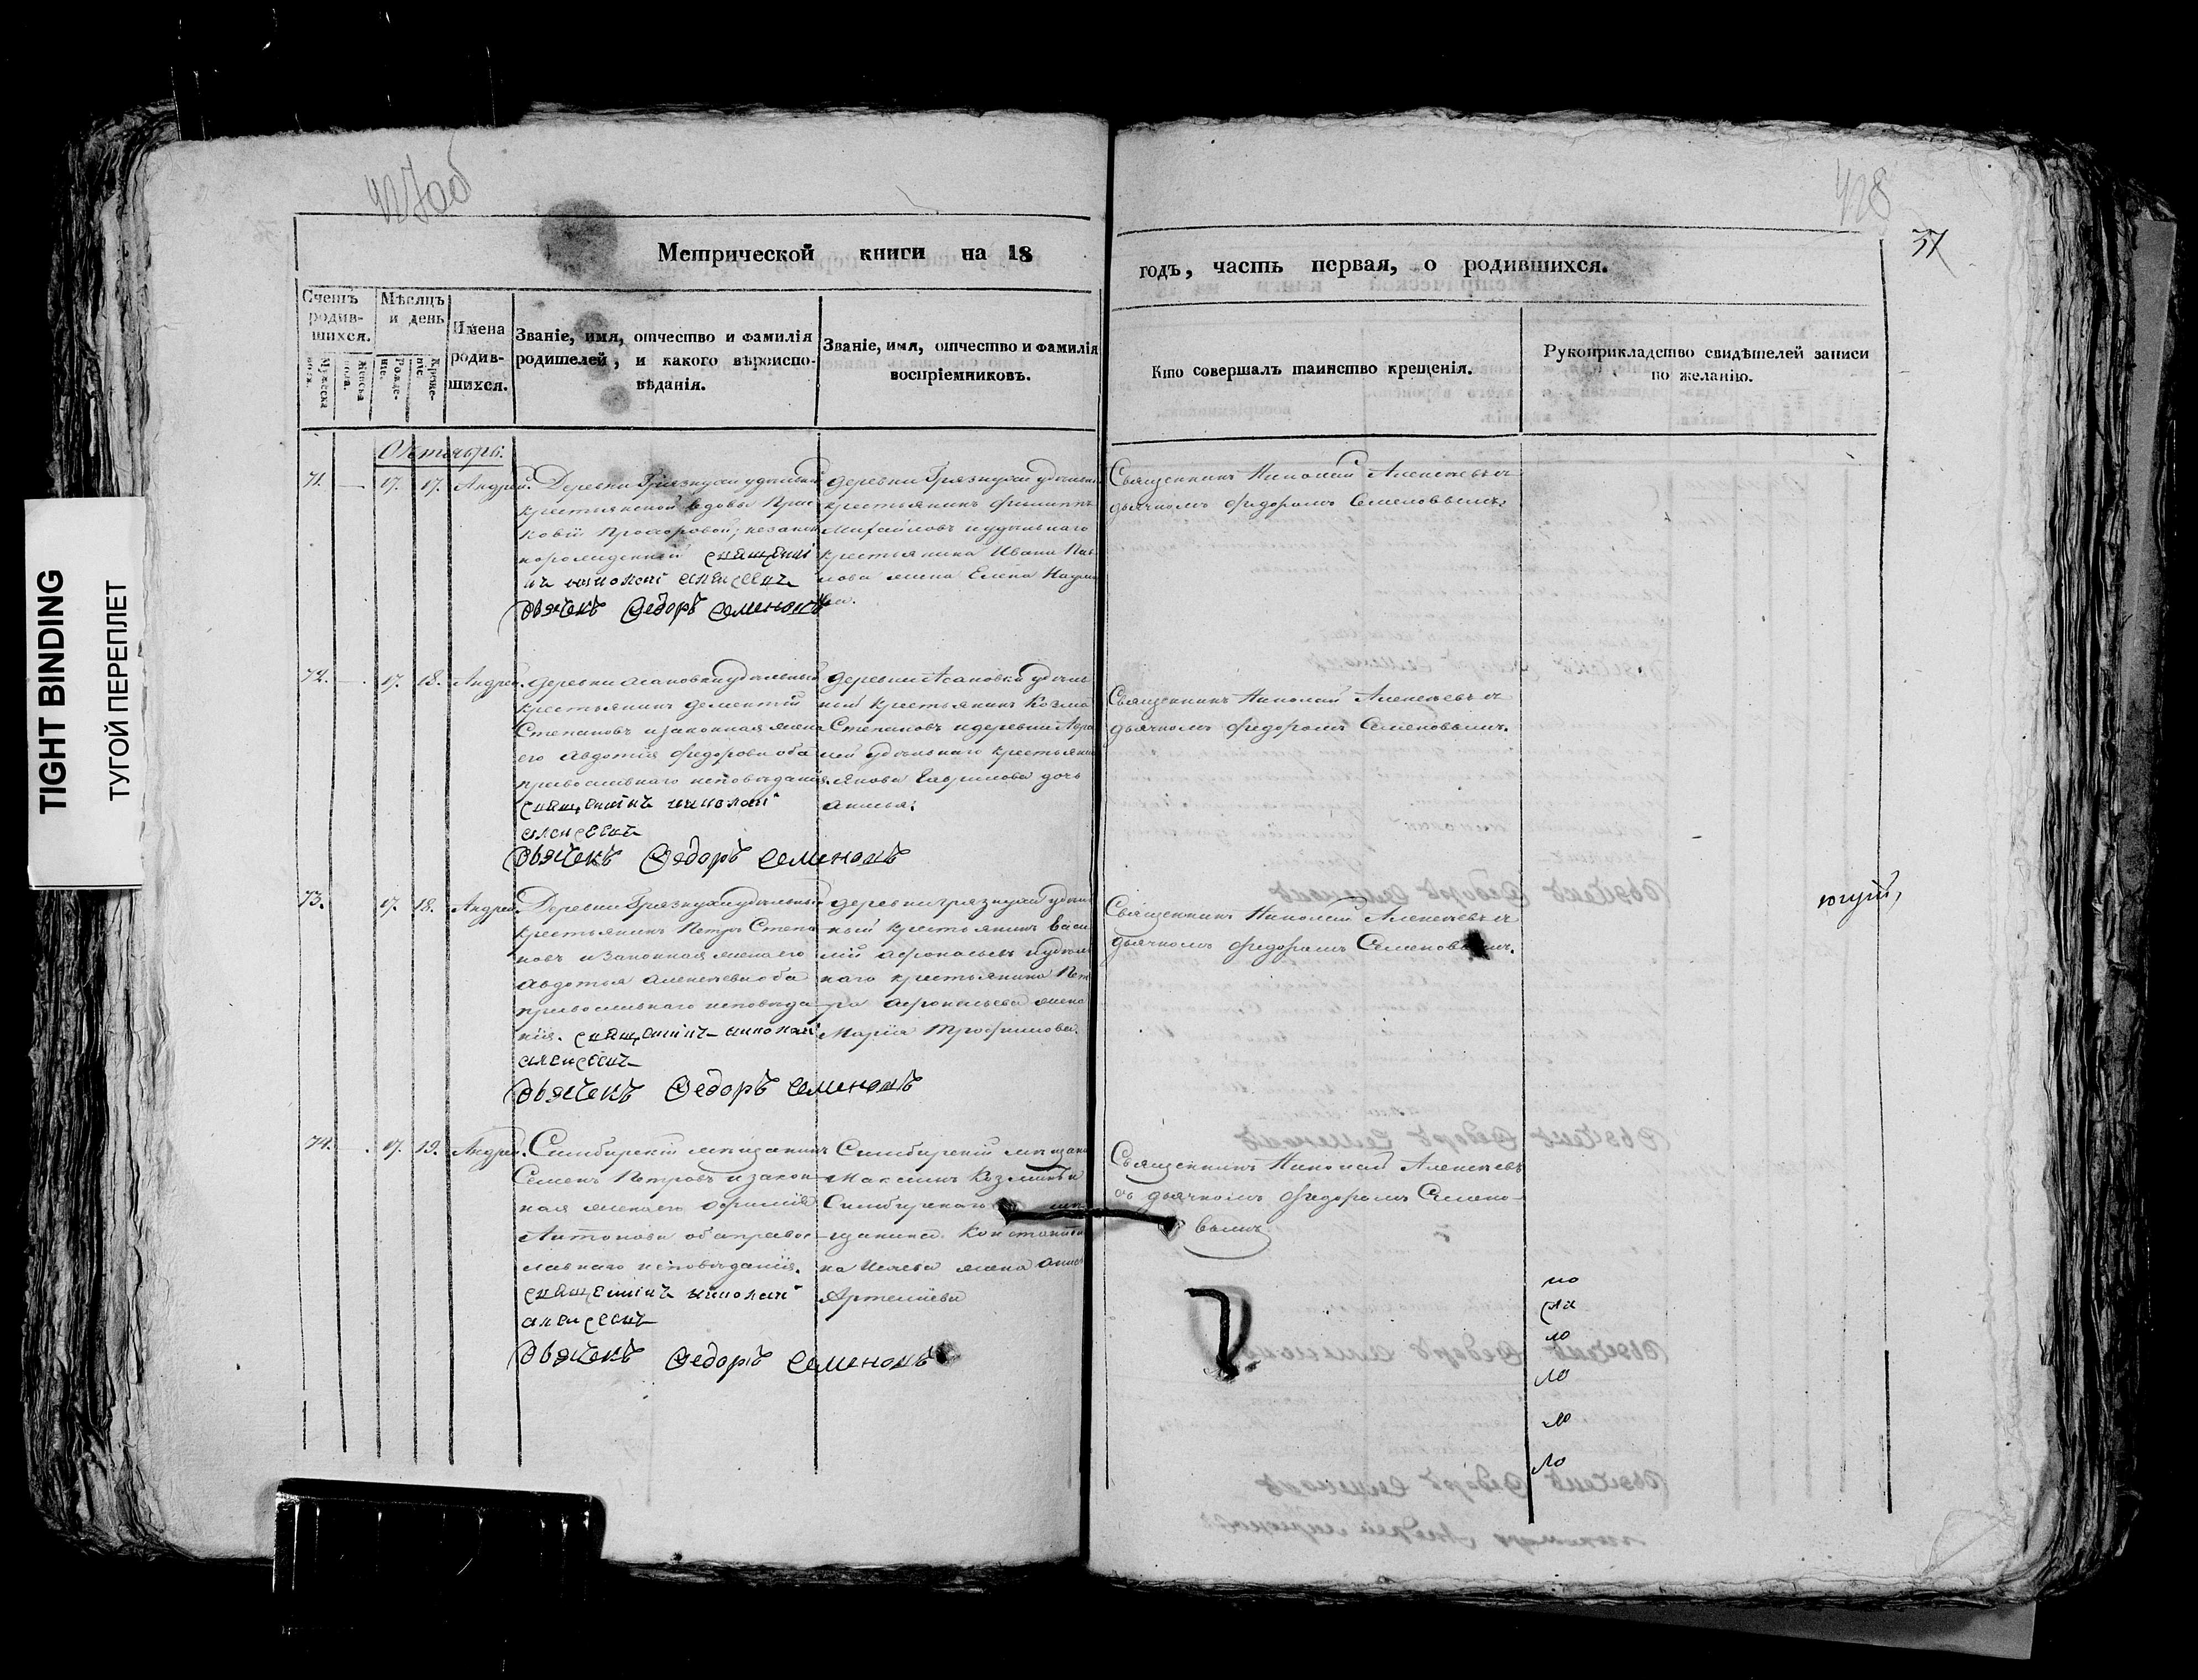 427об
428
37
Метрической книги на 18
годъ, часть первая, о родившихся.
Счетъ родив-шихся.
Мужеска пола.
Женска пола.
Мѣсяцъ и день
Рожде-ніе.
Креще-ніе
Имена родив-шихся.
Званіе, имя, отчество и фамилія родителей, и какого вѣроиспо-вѣданія.
Званіе, имя, отчество и фамилія воспріемниковъ.
Кто совершалъ таинство крещенія.
Рукоприкладство свидѣтелей записи по желанію.
Октябрь.
71. — 17. 17. Андрей.
Деревни Грязнухи удѣльной
крестьянской вдовы Прас-
ковіи Прохоровой, незакон
норожденной священі
къ николаі алексеевъ
дьячекъ Ѳедоръ семеновъ
деревни Грязнухи удѣльн
крестьянинъ Филиппъ
Михайловъ и удѣльнаго
крестьянина Ивана Пав
лова жена Елена Наумо
ва.
Священникъ Николай Алексѣевъ съ
дьячкомъ Федоромъ Семеновымъ.
72. — 17. 18. Андрей.
деревни Асановки удѣльный
крестьянинъ Дементій
Степановъ и законная жена
его Авдотья Федорова оба
православнаго исповѣданія.
священникъ николаі
алексеевъ
дьячекъ Ѳедоръ семеновъ
деревни Асановки удѣль
ный крестьянинъ Козма
Степановъ и деревни
удѣльнаго крестьяни
Якова Гаврилова дочь
Священникъ Николай Алексѣевъ съ
дьячкомъ Федоромъ Семеновымъ.
73. 17. 18. Андрей.
Деревни Грязнухи удѣльный
крестьянинъ Петръ Степа
новъ и законная жена его
Авдотья Алексѣевна оба
православнаго исповѣда
нія. священникъ николаі
алексеевъ
дьячекъ Ѳедоръ семеновъ
деревни грязнухи удѣль
ный крестьянинъ Васи
лій Афонасьевъ и удѣль
наго крестьянина Пет
ра Афонасьева жена
Марія Трофимова.
Священникъ Николай Алексѣевъ съ
дьячкомъ Федоромъ Семеновымъ.
74. — 17. 19. Андрей.
Симбирскій мѣщанинъ
Семенъ Петровъ и закон
ная жена его Афимія
Антонова оба правос-
лавнаго исповѣданія.
священникъ николаі
алексеевъ
дьячекъ Ѳедоръ семеновъ
Симбирскій мѣщани
Максимъ Козминъ и
Симбирскаго мѣ
щанина Константи
на Исаева жена
Артемьева
Священникъ Николай Алексѣевъ
съ дьячкомъ Федоромъ Семено-
вымъ
по
сла
ло
ло
ло
ло
TIGHT BINDING
ТУГОЙ ПЕРЕПЛЕТ